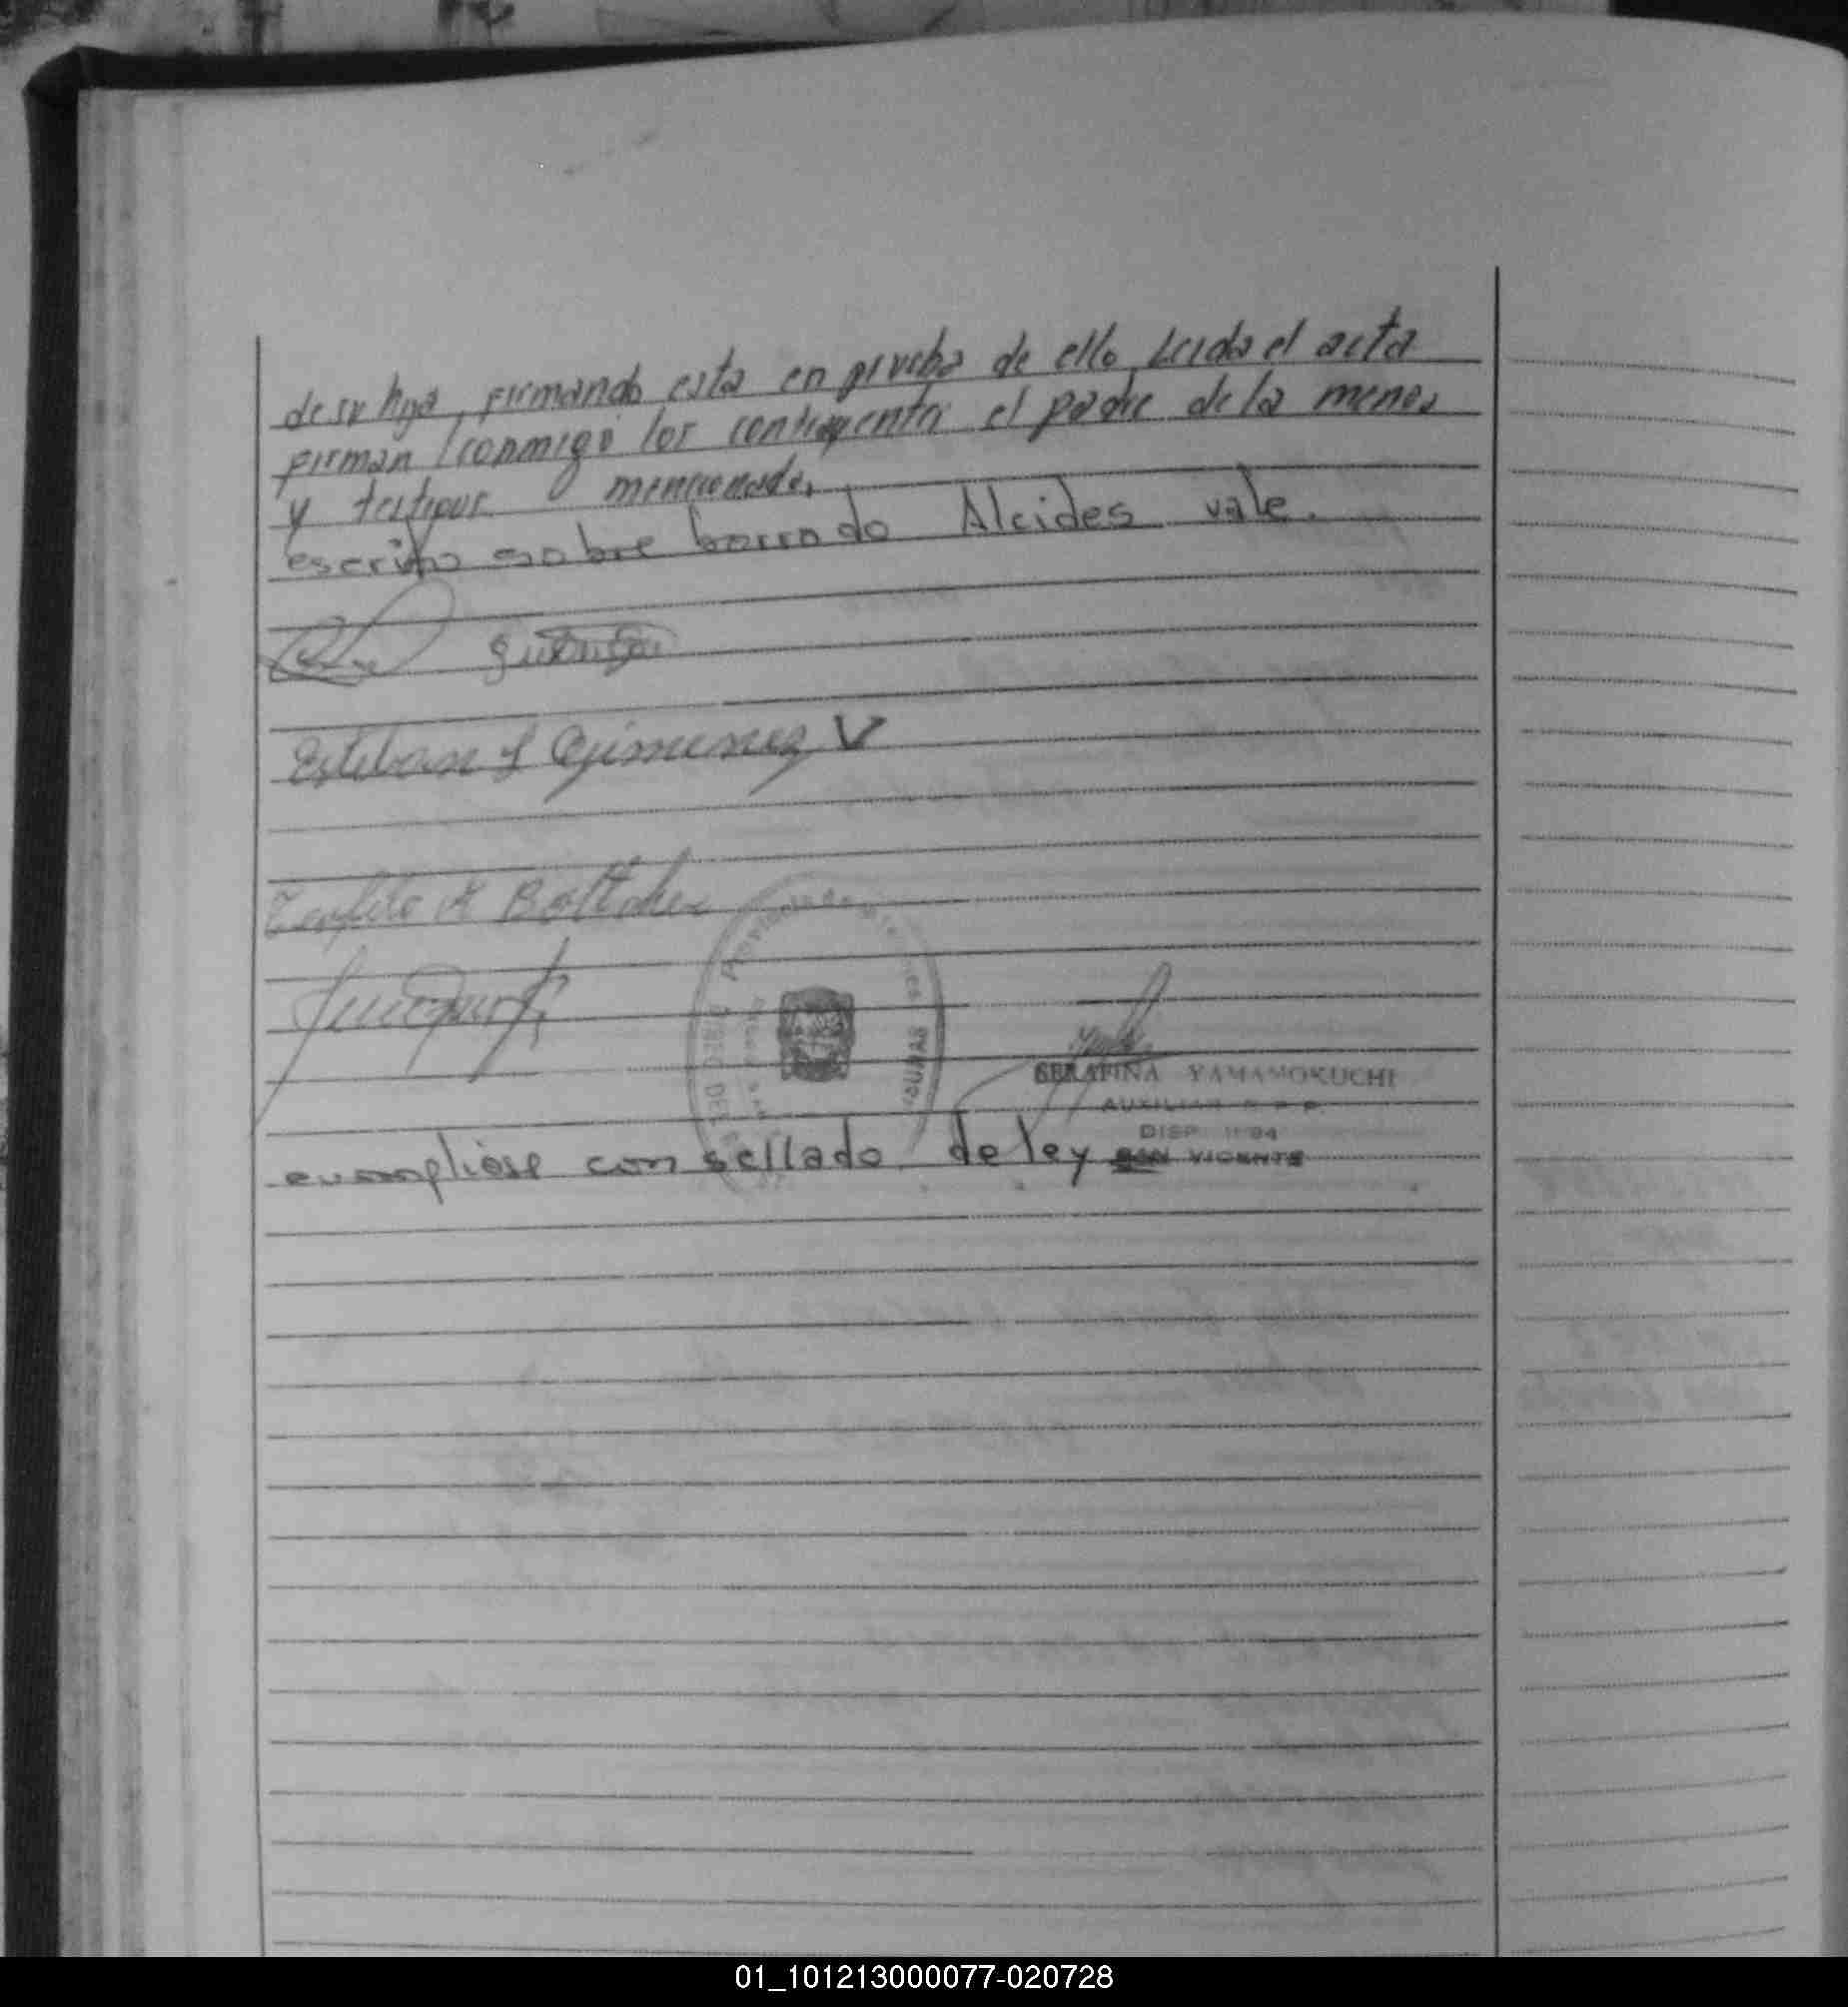 de su hija, firmando esta en prueba de ello, Leida el acta
firman conmigo los contrayentes el padre de la menor
y testigos mencionados.
escrito sobre borrado Alcides vale.
Esteban S Gimenez V
Teofilo A Bottcher
Provincia de Misiones
SERAFINA YAMAMOKUCHI
AUXILIAR
DISP. 11 94
SAN VICENTE
cumpliose con sellado de ley
01_101213000077-020728